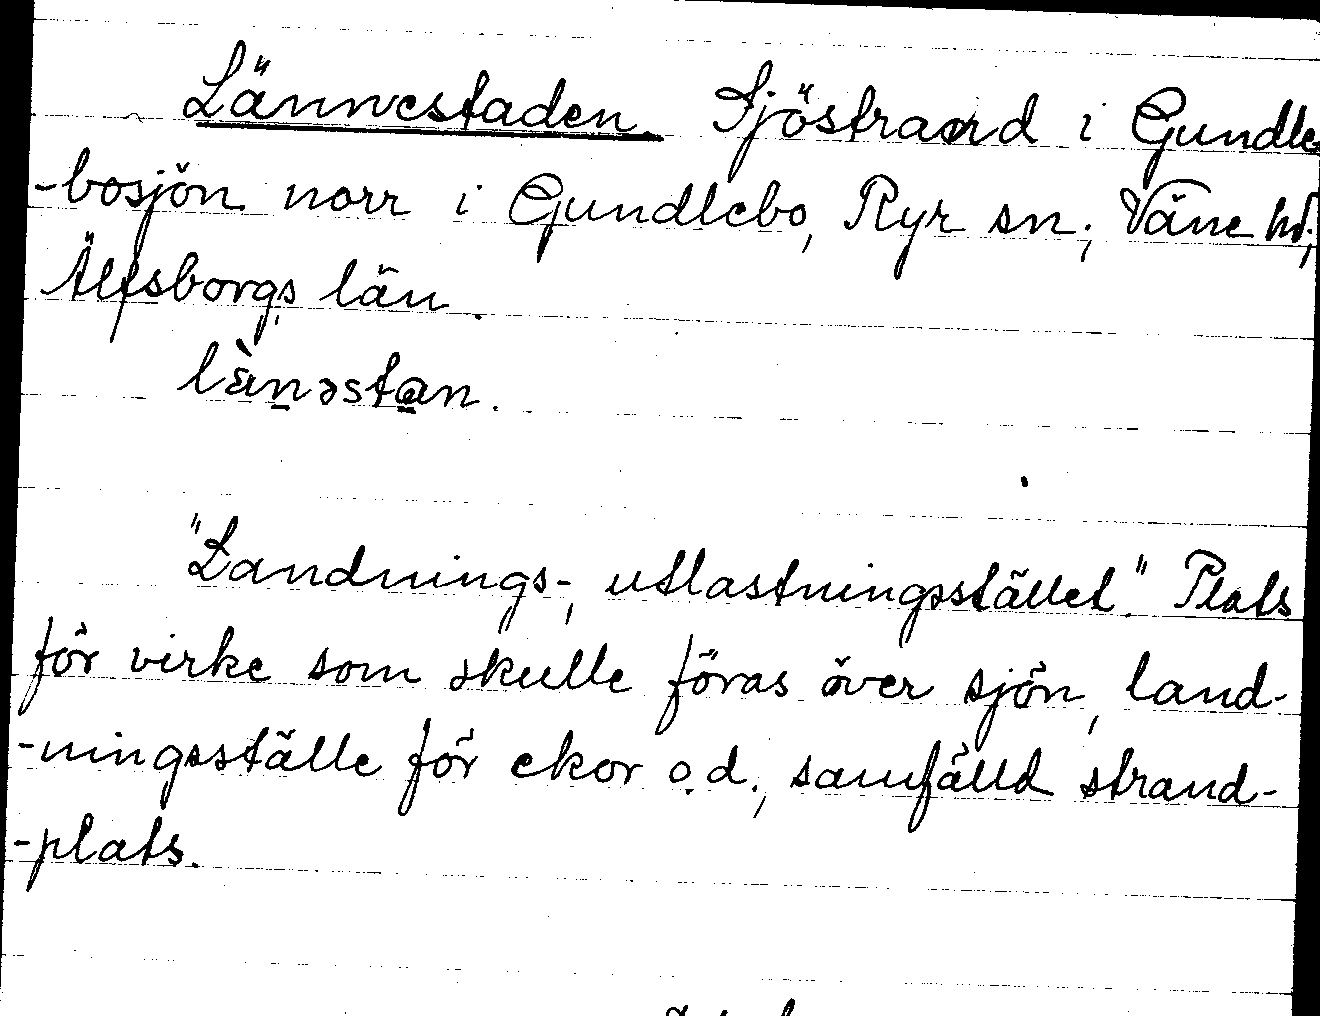 Lännestaden. Sjöstrand i Gundle-
-bosjön norr i Gundlebo, Ryr sn; Väne hd;
Älfsborgs län.
lä̀nəstan.
"Landnings-, utlastningsstället." Plats
för virke som skulle föras över sjön, land-
-ningsställe för ekor o.d., samfälld strand-
-plats.